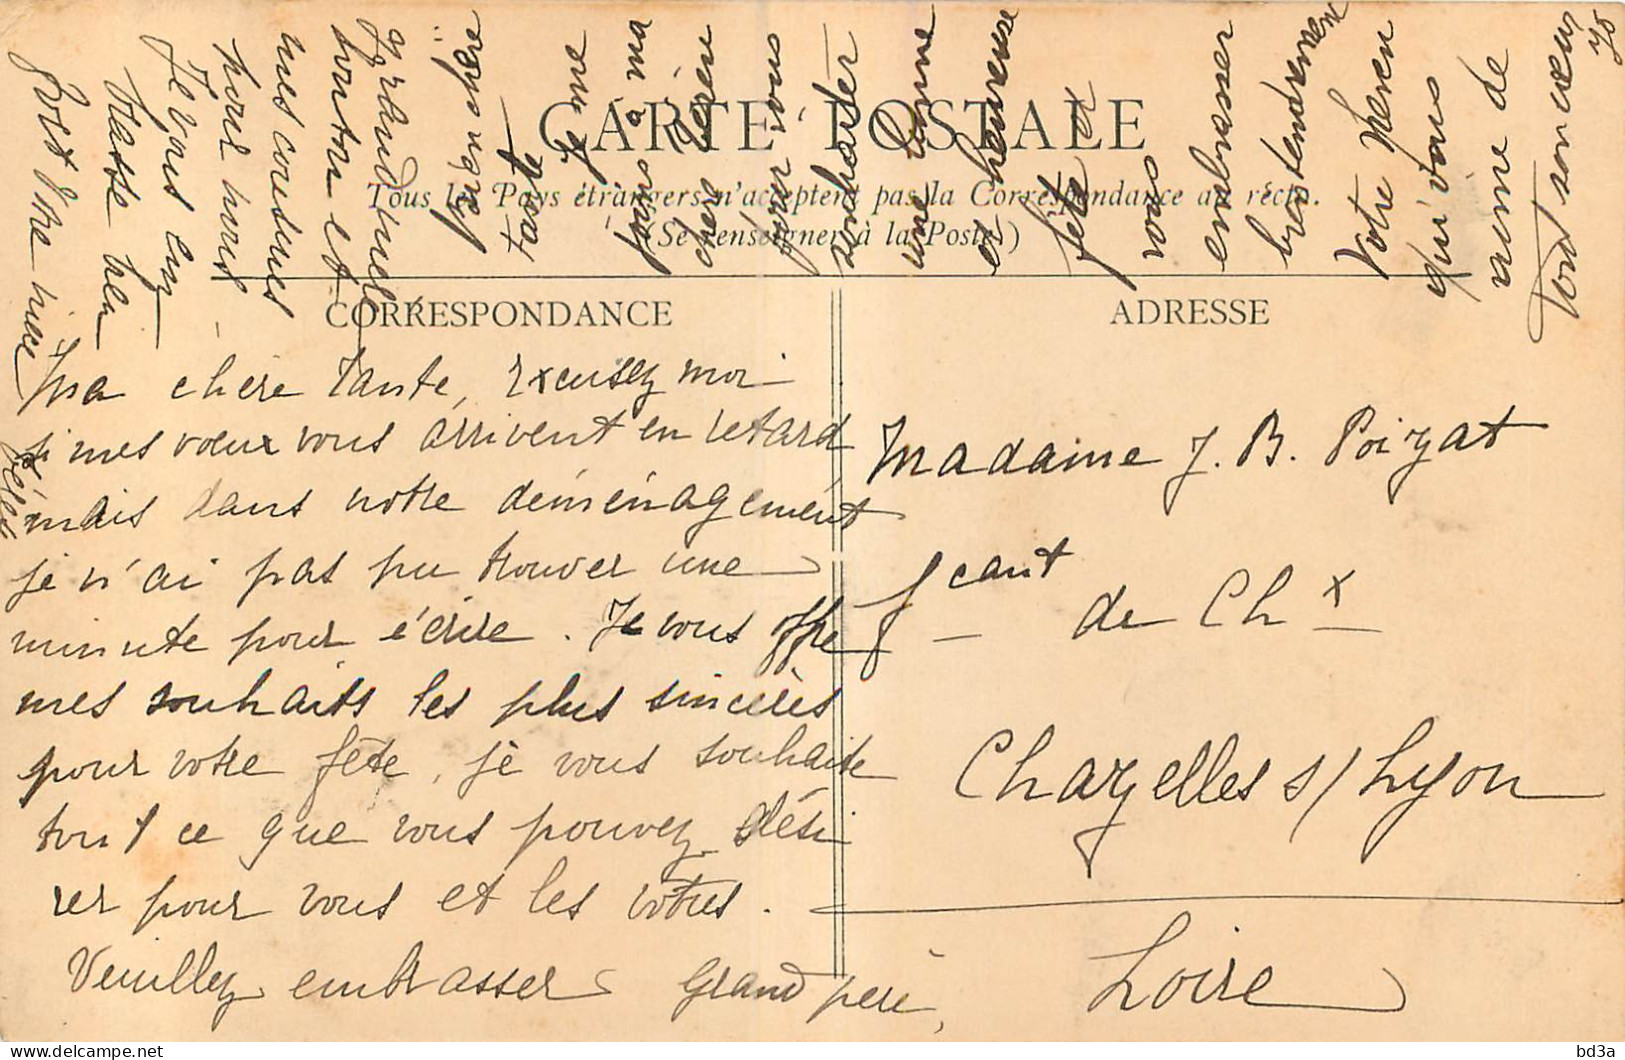 CARTE POSTALE
Tous les Pays étrangers n'acceptent pas la Correspondance au recto.
(Se renseigner à la Poste.)
CORRESPONDANCE
ADRESSE
Ma chère Tante, Excusez moi
si mes vœux vous arrivent en retard
mais dans notre déménagement
je n'ai pas pu trouver une
minute pour écrire. Je vous offre
mes souhaits les plus sincères
pour votre fête, je vous souhaite
tout ce que vous pouvez dési
rer pour vous et les vôtres.
Veuillez embrasser Grand père,
Grand'mère
tonton et
mes cousines
pour nous
Je vous em
brasse bien
fort Votre nièce
Madame J. B. Poizat
fcant de Chx
Chazelles s/Lyon
Loire
Je me
joins à ma
pour vous
souhaiter
une bonne
et heureuse
fête et
vous
embrasser
bien tendrement
Votre neveu
qui vous
aime de
tout son cœur